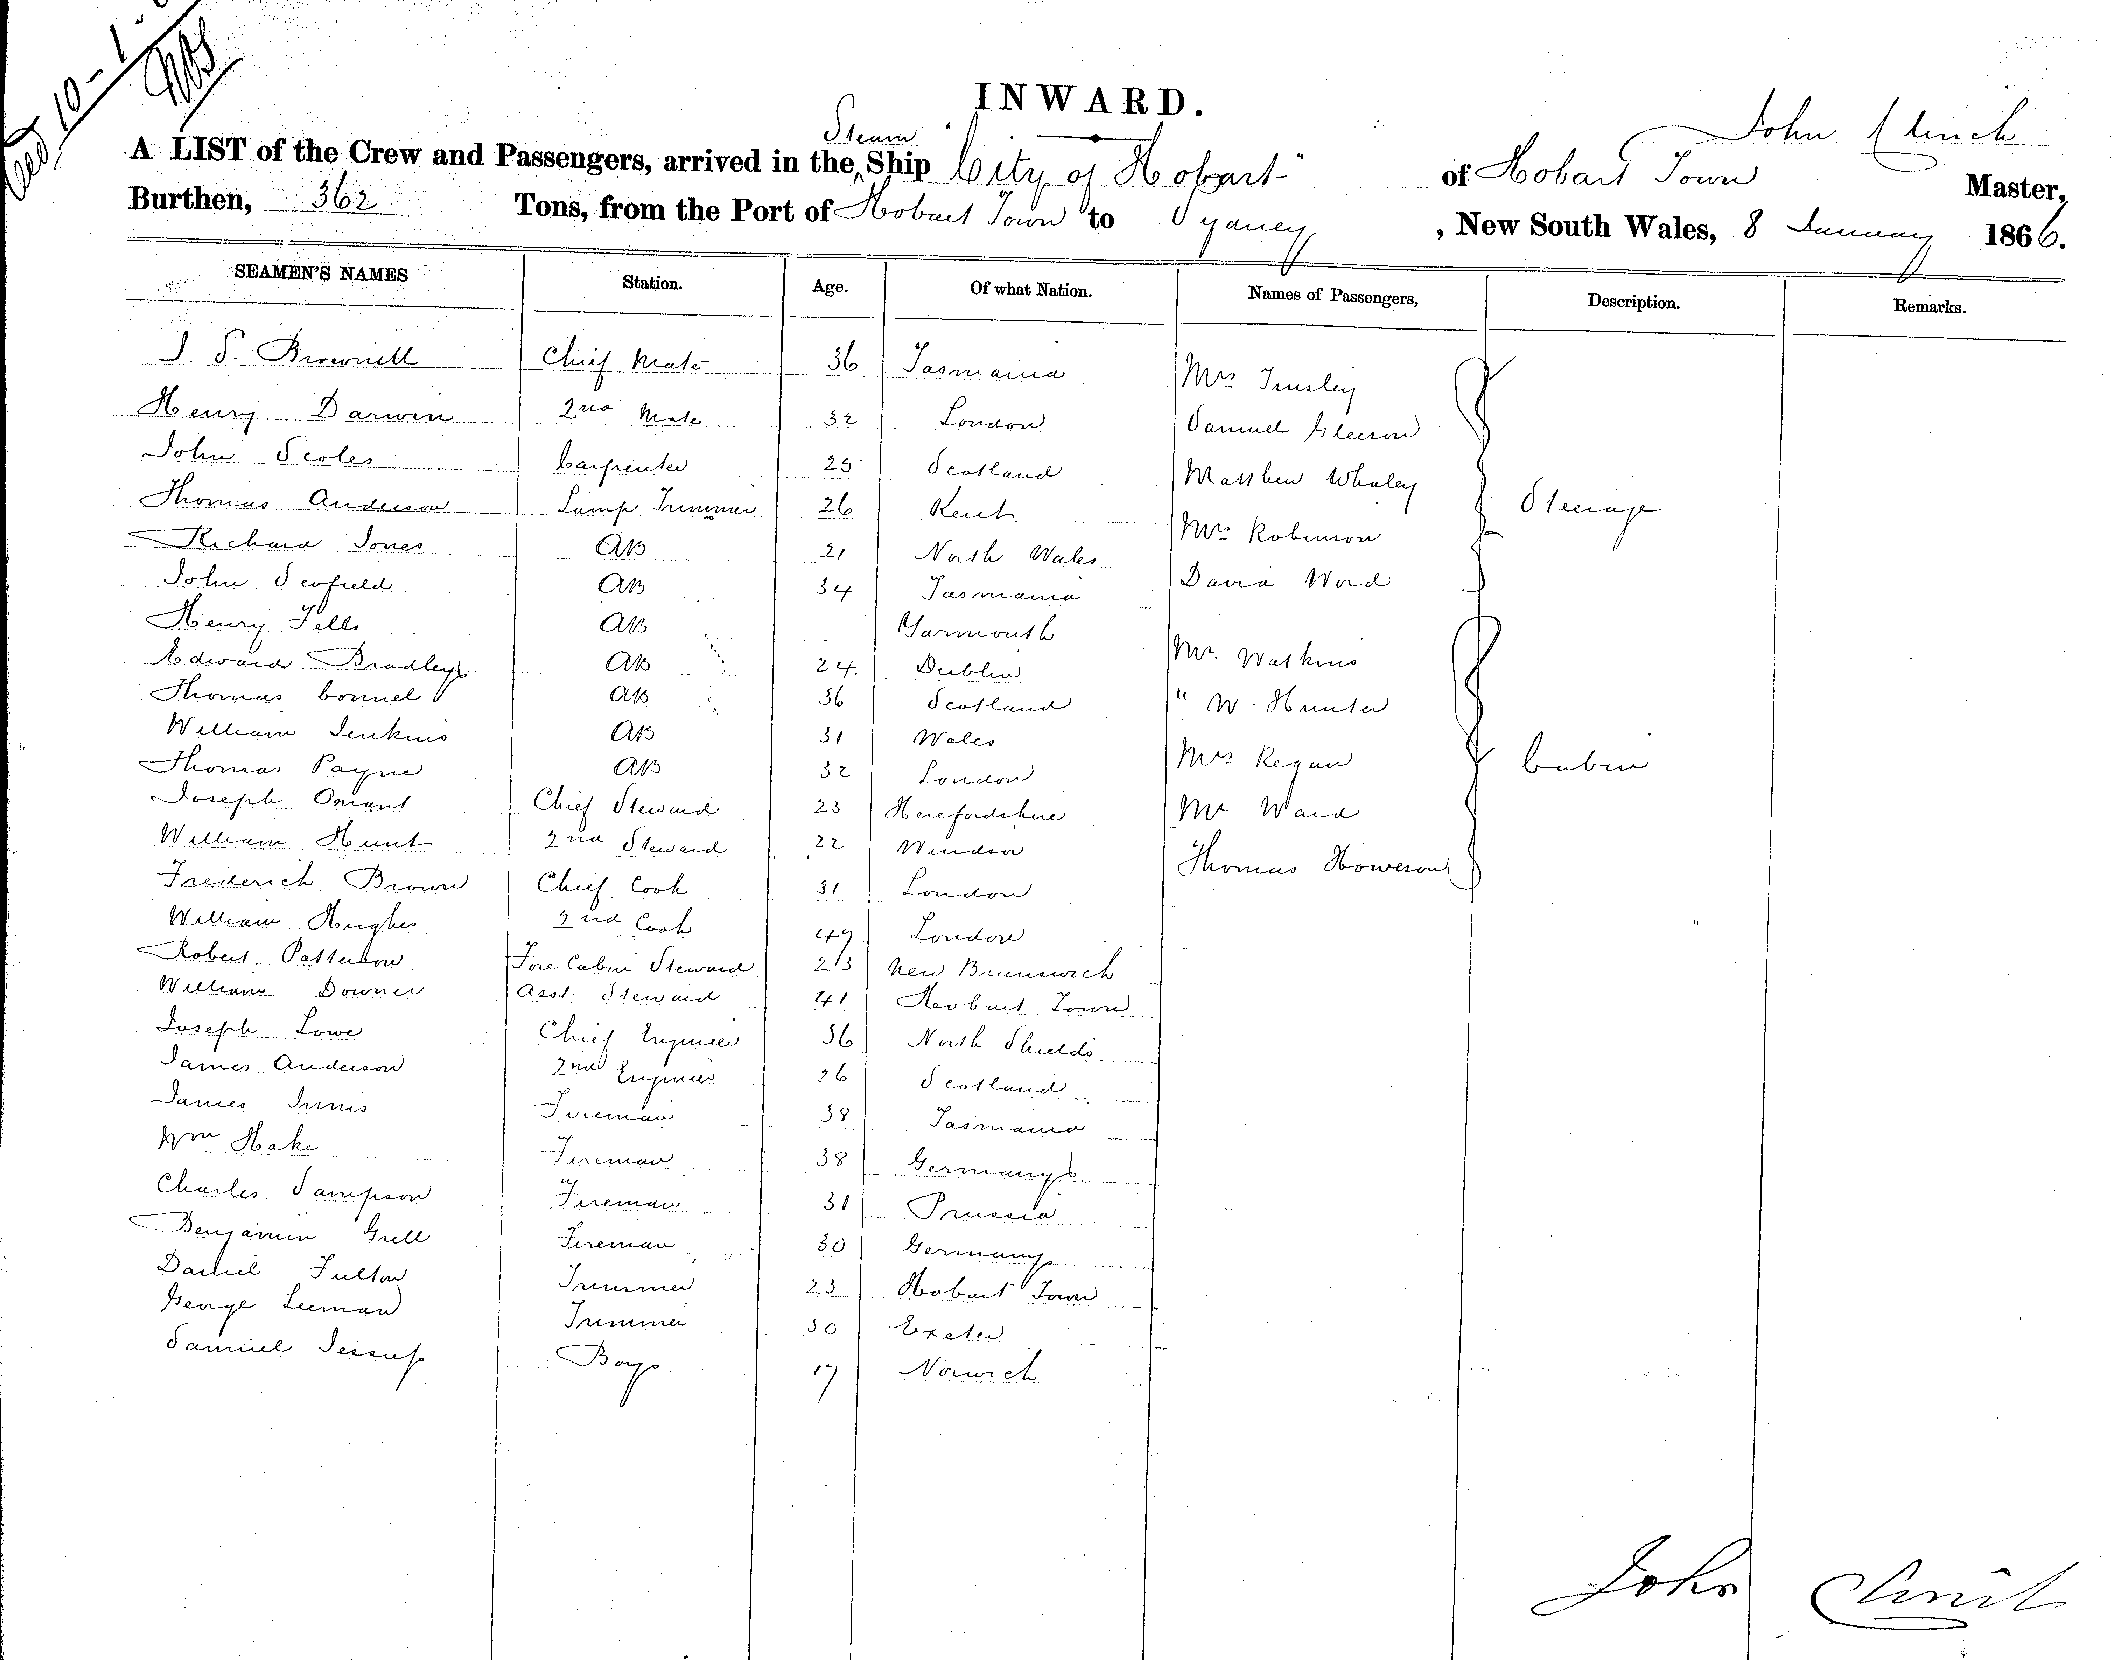 10-1-
INWARD.
Steam
John Clinch
A LIST of the Crew and Passengers, arrived in the Ship "City of Hobart" of Hobart Town Master,
Burthen, 362 Tons, from the Port of Hobart Town to Sydney, New South Wales, 8 January 1866.
SEAMEN'S NAMES Station. Age. Of what Nation. Names of Passengers, Description. Remarks.
J. S. Brownell Chief Mate 36 Tasmania Mrs Tinsley
Henry Darwin 2nd Mate 32 London Samuel Gleeson
John Scoles Carpenter 25 Scotland Matthew Whaley
Thomas Anderson Lamp Trimmer 26 Kent Mrs Robinson Steerage
Richard Jones AB 21 North Wales David Ward
John Scofield AB 34 Tasmania
Henry Fells AB Yarmouth Mr. Watkins
Edward Bradley AB 24 Dublin " W. Hunter
Thomas Connel AB 36 Scotland
William Jenkins AB 31 Wales Mrs Regan Cabin
Thomas Payne AB 32 London
Joseph Chief Steward 23 Herefordshire Mr Ward
William Hunt 2nd Steward 22 Windsor Thomas Howeson
Frederich Brown Chief Cook 31 London
William Hughes 2nd Cook 49 London
Robert Patterson Fore Cabin Steward 23 New Brunswick
William Downer Asst. Steward 41 Hobart Town
Joseph Lowe Chief Engineer 36 North Shields
James Anderson 2nd Engineer 26 Scotland
James Innis Fireman 38 Tasmania
Wm Hake Fireman 38 Germany
Charles Sampson Fireman 31 Prussia
Benjamin Grell Fireman 30 Germany
Daniel Fulton Trimmer 23 Hobart Town
George Leeman Trimmer 30 Exeter
Samuel Jessup Boy 17 Norwich
John Clinch